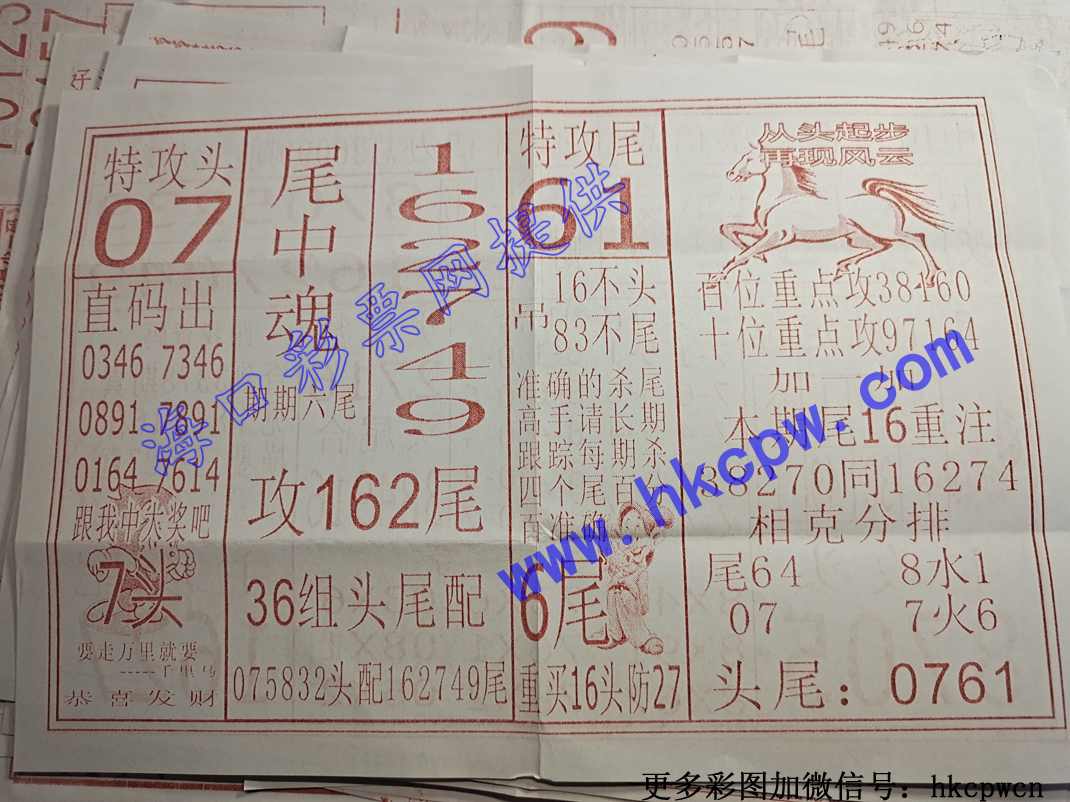 特攻头
07
直码出
0346 7346
0891 7891
0164 7614
跟我中大奖吧
7头
要走万里就要
-----千里马
恭喜发财
尾中魂
1
6
2
7
4
9
期期六尾
攻162尾
36组头尾配
075832头配162749尾
特攻尾
61
吊
16不头
83不尾
准确的杀尾
高手请长期
跟踪每期杀
四个尾百分
百准确
6尾
重买16头防27
从头起步
再现风云
百位重点攻38160
十位重点攻97164
加一加
本期尾16重注
38270同16274
相克分排
尾64 8水1
07 7火6
头尾：0761
海口彩票网提供
www.hkcpw.com
更多彩图加微信号：hkcpwcn